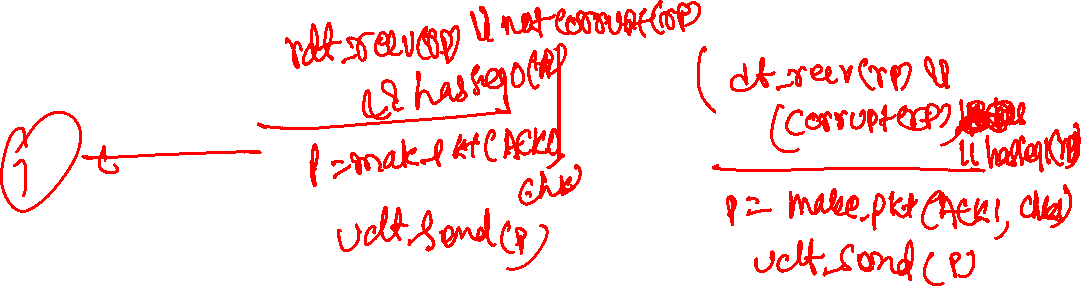 rdt_rcv(rp) && notcorrupt(rp)
&& hasseq0(rp)
p = make_pkt(ACK0, chk)
udt_send(p)
rdt_rcv(rp) &&
(corrupt(rp)
|| hasseq1(rp)
p = make_pkt(ACK1, chk)
udt_send(p)